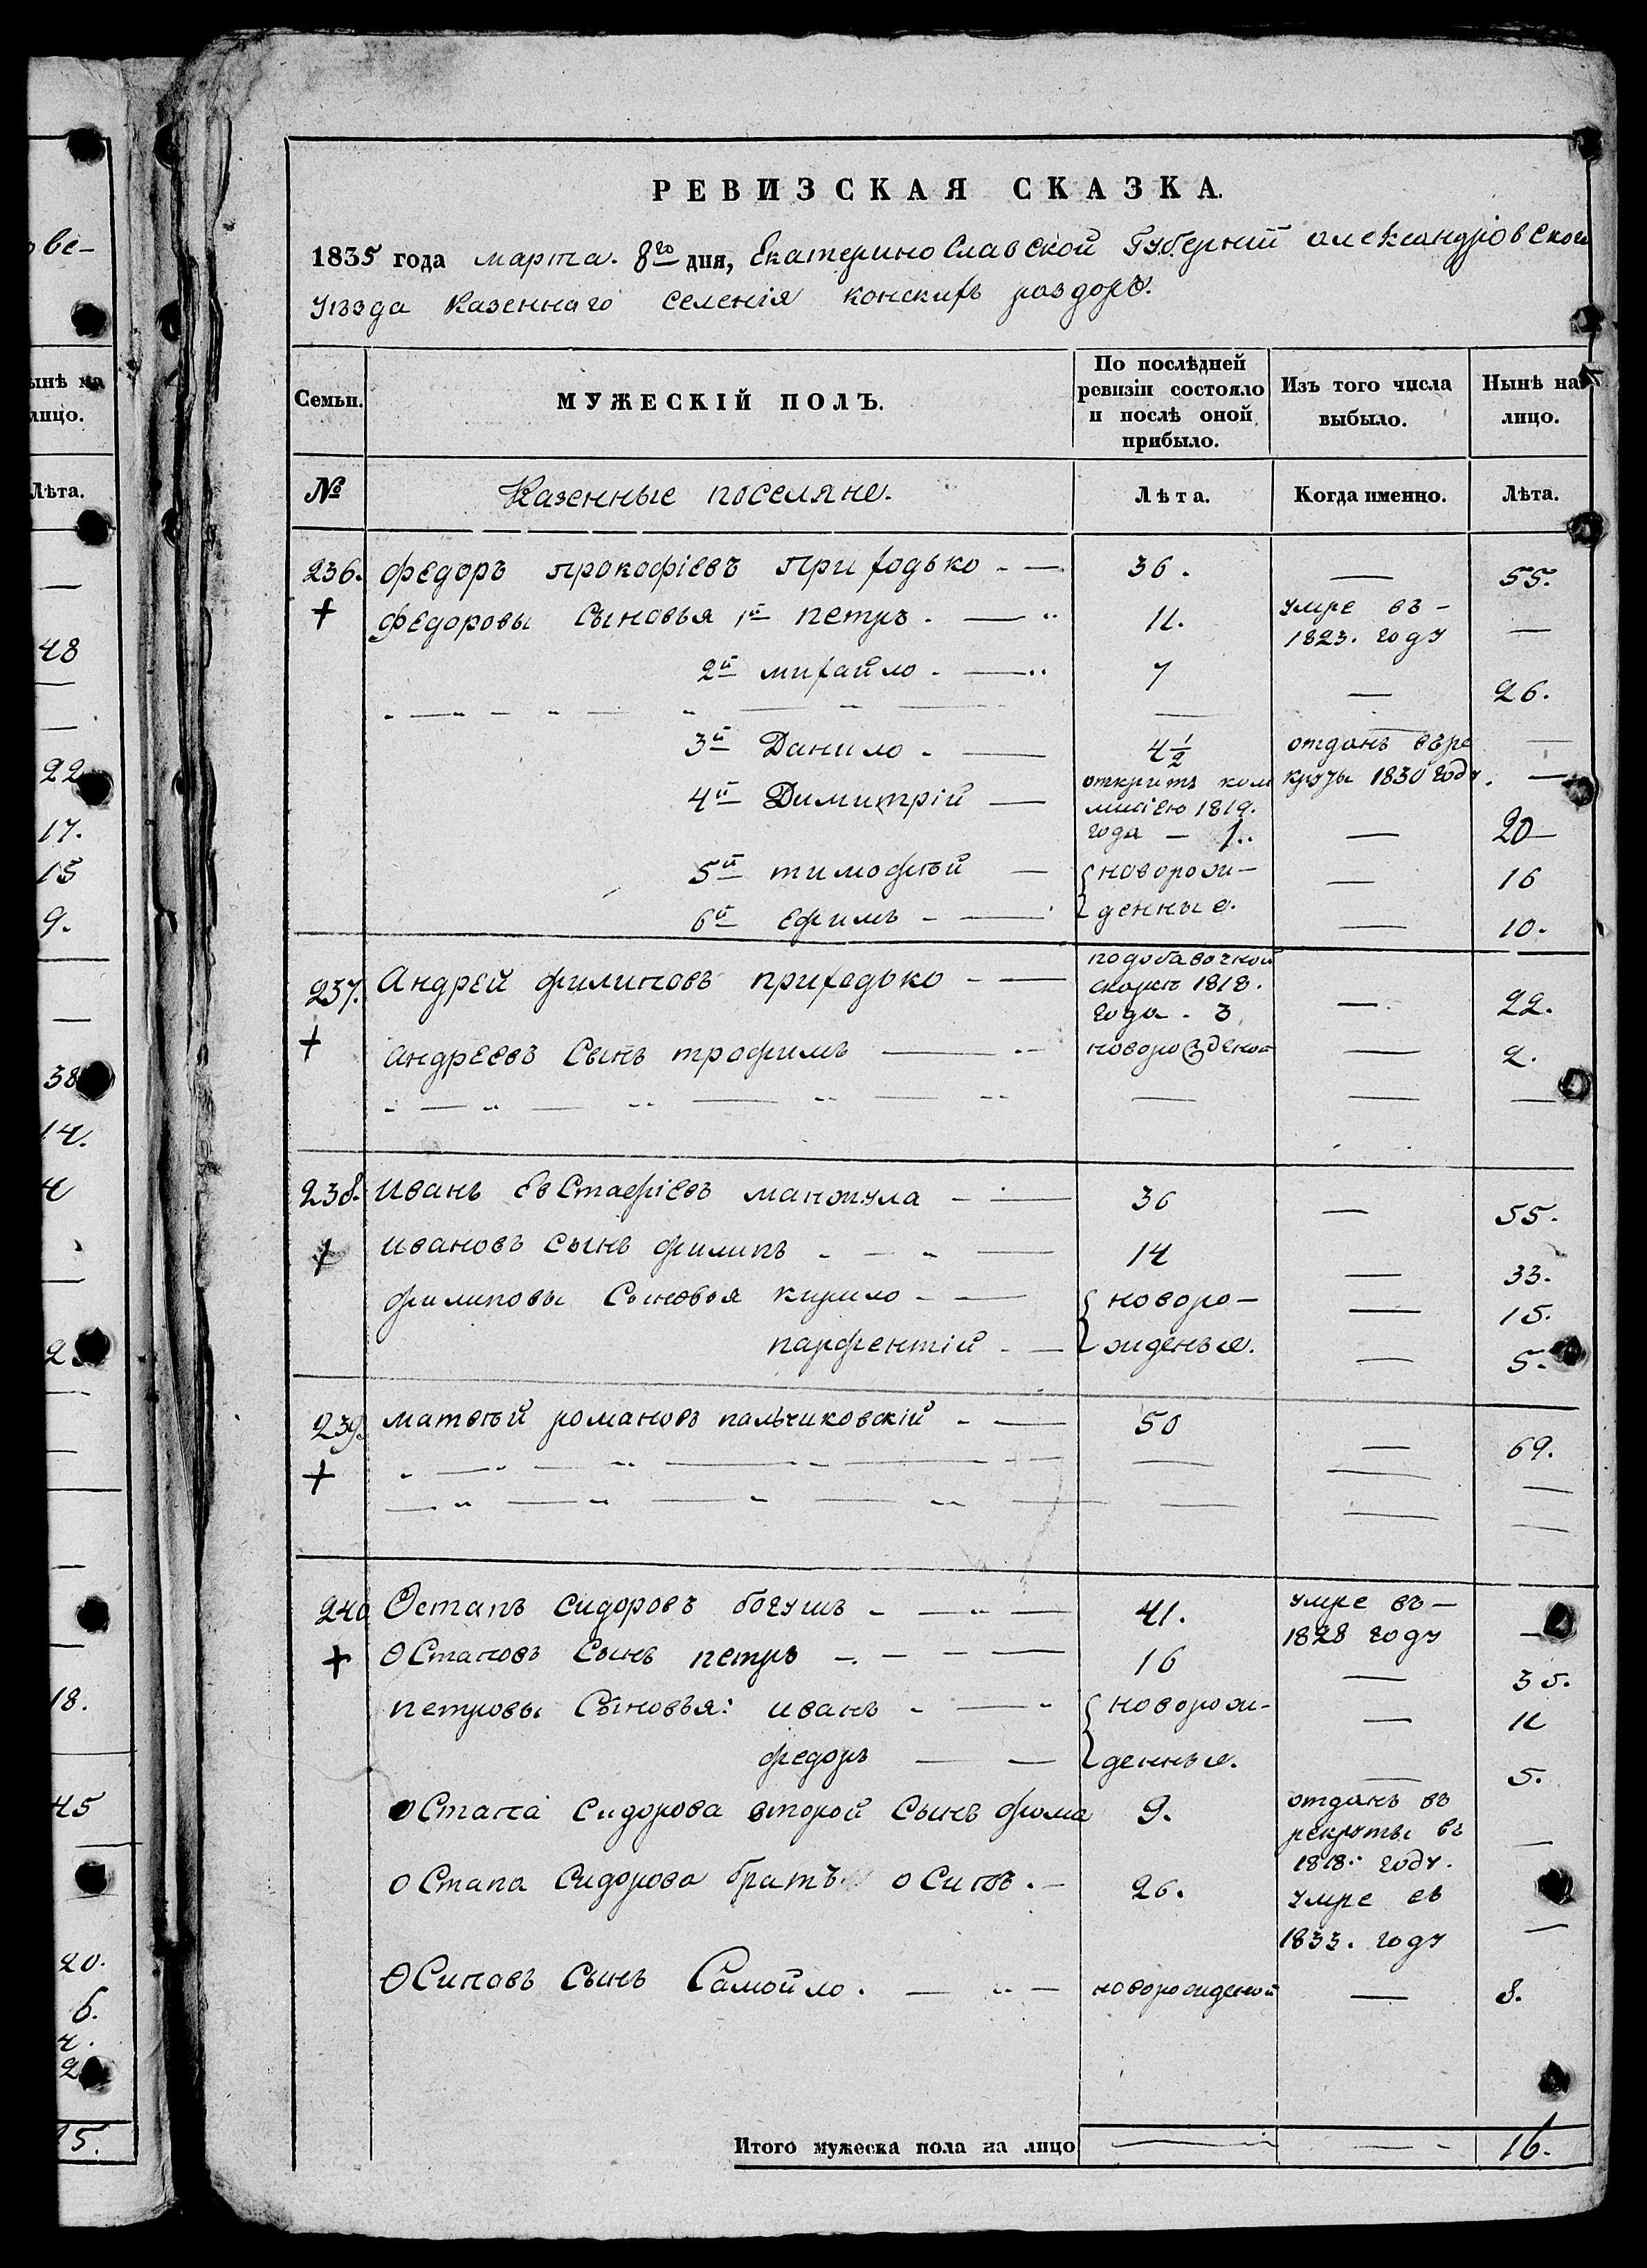 ве-
РЕВИЗСКАЯ СКАЗКА.
1835 года марта. 8го дня, Екатеринославской Губернии александровскои
уѣзда Казеннаго селенія конских раздоръ.
ынѣ на
лицо.
Семьи.
МУЖЕСКІЙ ПОЛЪ.
По послѣдней
ревизіи состояло
и послѣ оной
прибыло.
Изъ того числа
выбыло.
Нынѣ на
лицо.
Лѣта.
№
Казенные поселяне.
Лѣта.
Когда именно.
Лѣта.
236. федоръ прокофіевъ приходько - — 36. — 55.
+ федоровы сыновья 1й петръ . — 11. умре въ - 1823. году —
2й михайло . — 7 — 26.
3й Данило . — 4 1/2 отданъ въре круты 1830 году. —
4й Димитрій — открытъ ком мисіею 1819. года — 1.. — 20
5й тимофѣй — { новорож- — 16
6й ефимъ - — { денные. — 10.
237. Андрей филиповъ приходько - — подобавочной скаски 1818. года . 3 — 22.
+ андреевъ сынъ трофимъ — новорожденой — 2.
238. иванъ евстафіевъ манжула - — 36 — 55.
+ ивановъ сынъ филипъ . - — 14 — 33.
филиповы сыновья кирило - — { новоро- — 15.
парфентій . — { жденые. — 5.
239. матвѣй романовъ пальчиковскій - — 50 — 69.
+
240 Остапъ сидоровъ богушъ - — 41. умре въ - 1828 году —
+ Остаповъ сынъ петръ - — 16 — 35.
петровы сыновья: иванъ - — { новорож- — 11
федоръ — { денные. — 5.
остапа сидорова второй сынъ фома 9. отданъ въ рекруты въ 1818: году. —
остапа сидорова братъ осипъ. - 26. умре въ 1833. году —
Осиповъ сынъ Самойло. — новорожденой — 8.
Итого мужеска пола на лицо — — 16.
48
22
17.
15
9.
38
14.
4
18.
45
20.
6.
4.
2
15.